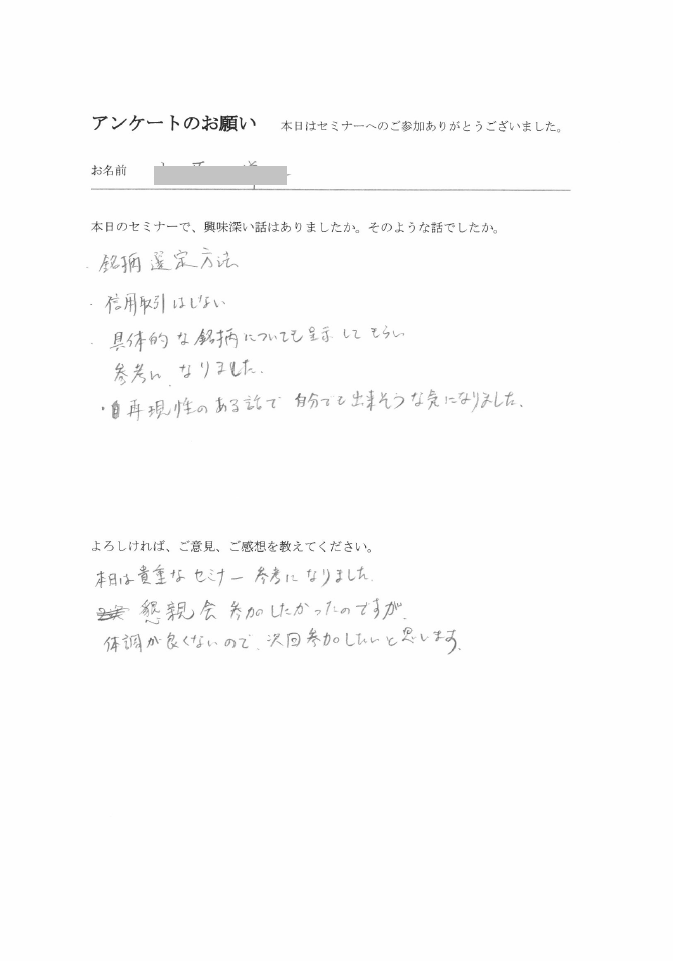 アンケートのお願い 本日はセミナーへのご参加ありがとうございました。
お名前
本日のセミナーで、興味深い話はありましたか。そのような話でしたか。
・銘柄選定方法
・信用取引はしない
・具体的な銘柄についても呈示してもらい
参考になりました.
・再現性のある話で 自分でも出来そうな気になりました.
よろしければ、ご意見、ご感想を教えてください。
本日は貴重なセミナー 参考になりました.
懇親会参加したかったのですが.
体調が良くないので、次回参加したいと思います.